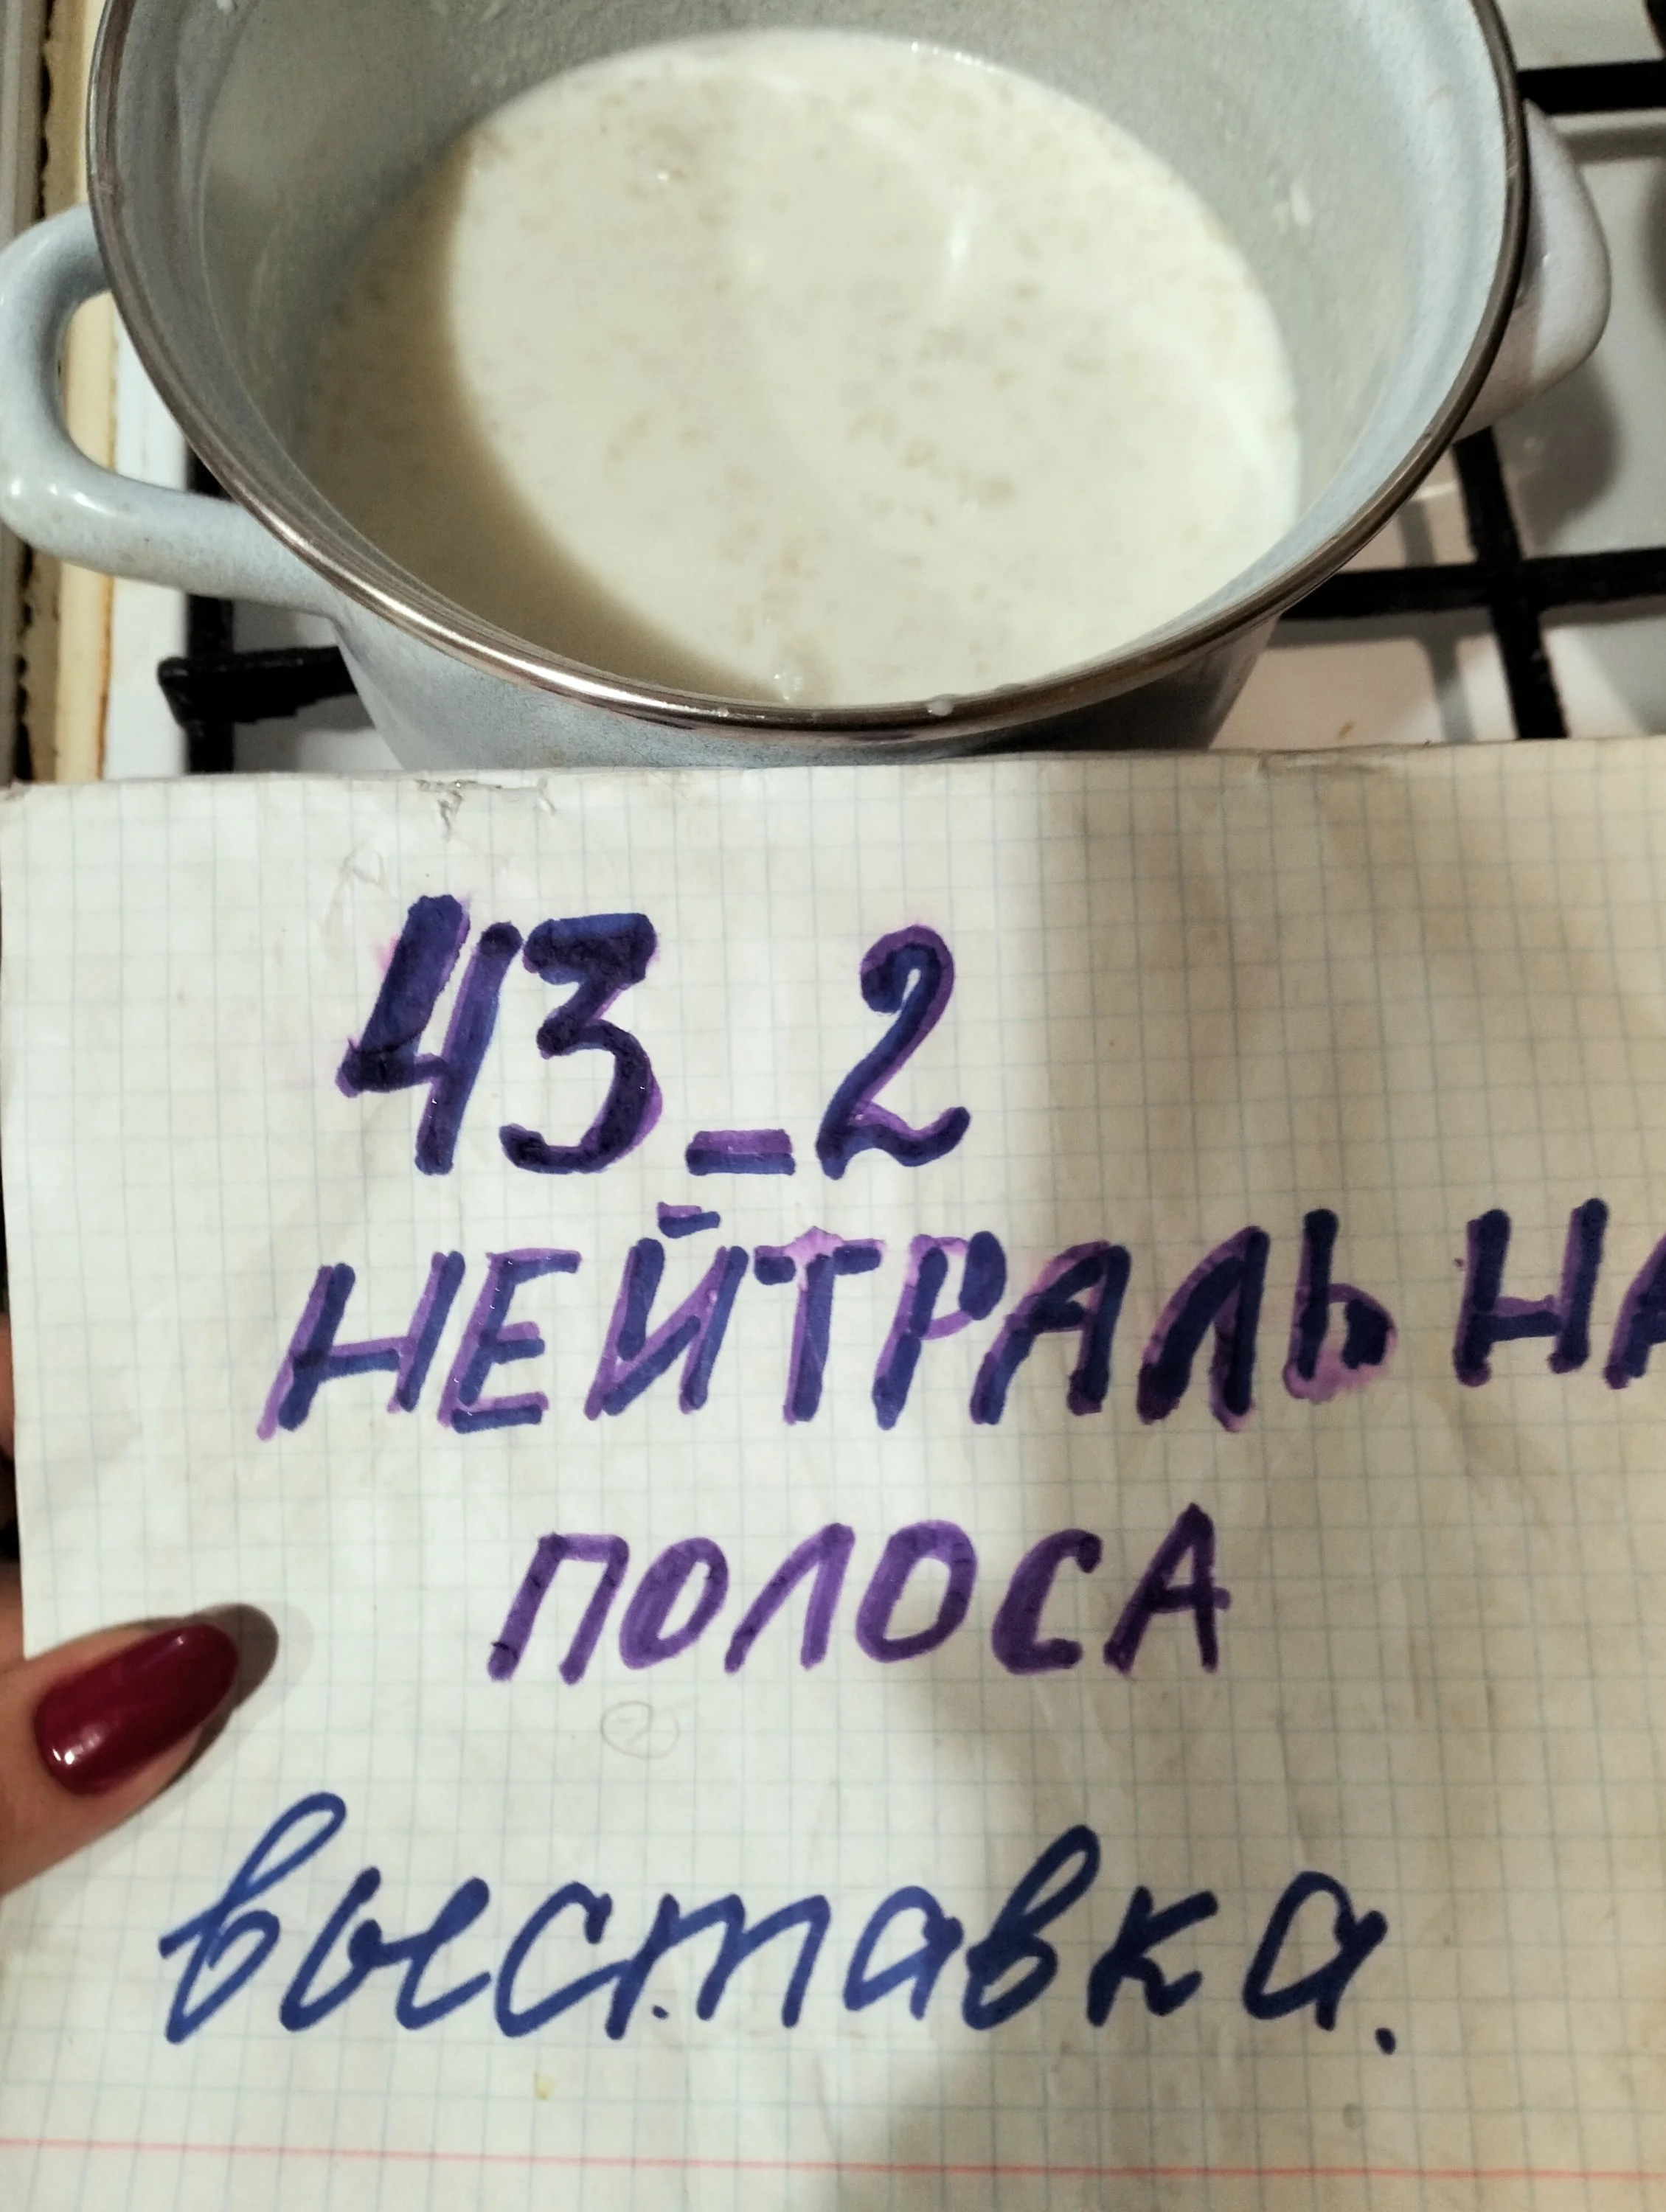 43_2
НЕЙТРАЛЬНА
ПОЛОСА
выставка.